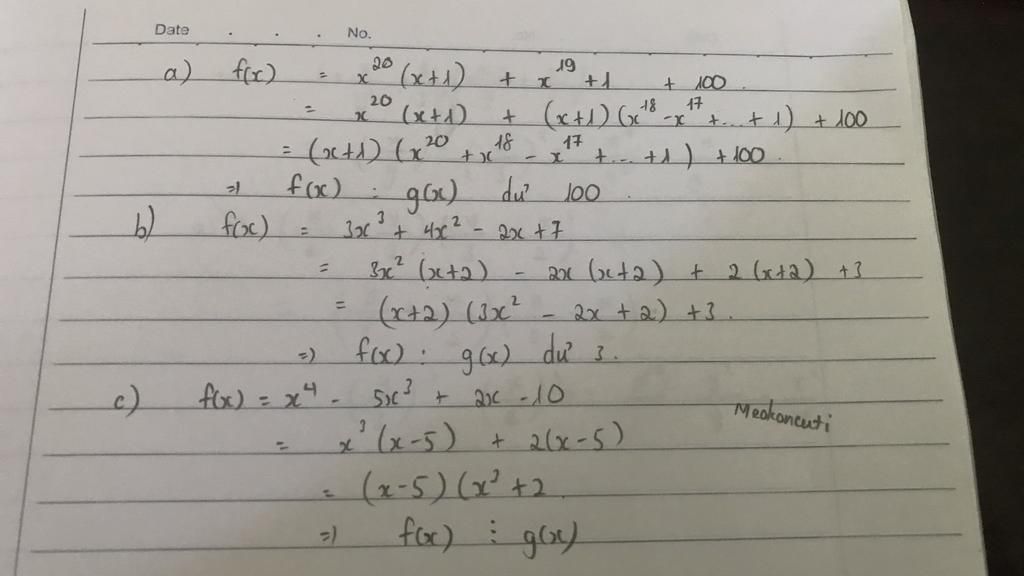 Date . . . No.
a) f(x) = x²⁰(x+1) + x¹⁹+1 + 100.
= x²⁰(x+1) + (x+1)(x¹⁸-x¹⁷+...+1) + 100
= (x+1)(x²⁰+x¹⁸-x¹⁷+...+1) +100.
=> f(x) : g(x) dư 100.
b) f(x) = 3x³ + 4x² - 2x + 7
= 3x²(x+2) - 2x(x+2) + 2(x+2) +3
= (x+2)(3x² - 2x + 2) +3.
=> f(x) : g(x) dư 3.
c) f(x) = x⁴ - 5x³ + 2x - 10
Meokoncuti
= x³(x-5) + 2(x-5)
= (x-5)(x³+2
=> f(x) ⋮ g(x)